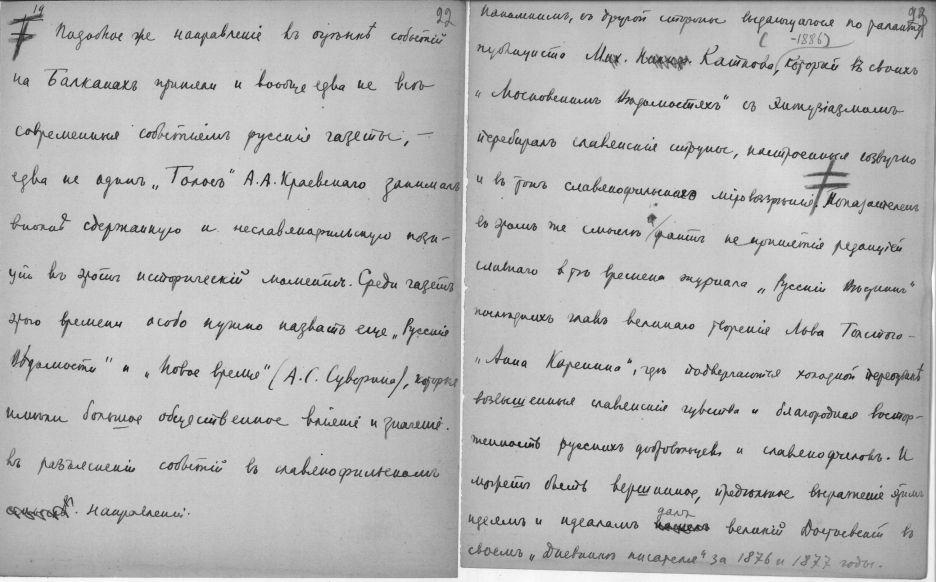 19
22
Подобное же направленіе въ оцѣнкѣ событій
на Балканахъ приняли и вообще едва не всѣ
современныя событіямъ русскія газеты, —
едва не одинъ „Голосъ" А. А. Краевскаго занималъ
вполнѣ сдержанную и неславянофильскую пози-
цію въ этотъ историческій моментъ. Среди газетъ
этого времени особо нужно назвать еще „Русскія
Вѣдомости" и „Новое время" (А. С. Суворина), которыя
имѣли большое общественное вліяніе и значеніе.
въ разъясненіи событій въ славянофильскомъ
направленіи.
23
Напомнимъ, съ другой стороны выдающагося по таланту
(-1886)
публициста Мих. Каткова, который въ своихъ
„Московскихъ Вѣдомостяхъ" съ энтузіазмомъ
перебиралъ славянскія струны, настроенныя созвучно
и въ тонъ славянофильскаго міровоззрѣнія. Показателенъ
въ этомъ же смыслѣ фактъ не принятія редакціей
славнаго въ тѣ времена журнала „Русскій Вѣстникъ"
послѣднихъ главъ великаго творенія Льва Толстого -
„Анна Каренина", гдѣ подвергаются холодной переоцѣнкѣ
возвышенныя славянскія чувства и благородная востор-
женность русскихъ добровольцевъ и славянофиловъ. И
можетъ быть вершинное, предѣльное выраженіе этимъ
идеямъ и идеаламъ далъ великій Достоевскій въ
своемъ „Дневникѣ писателя" за 1876 и 1877 годы.